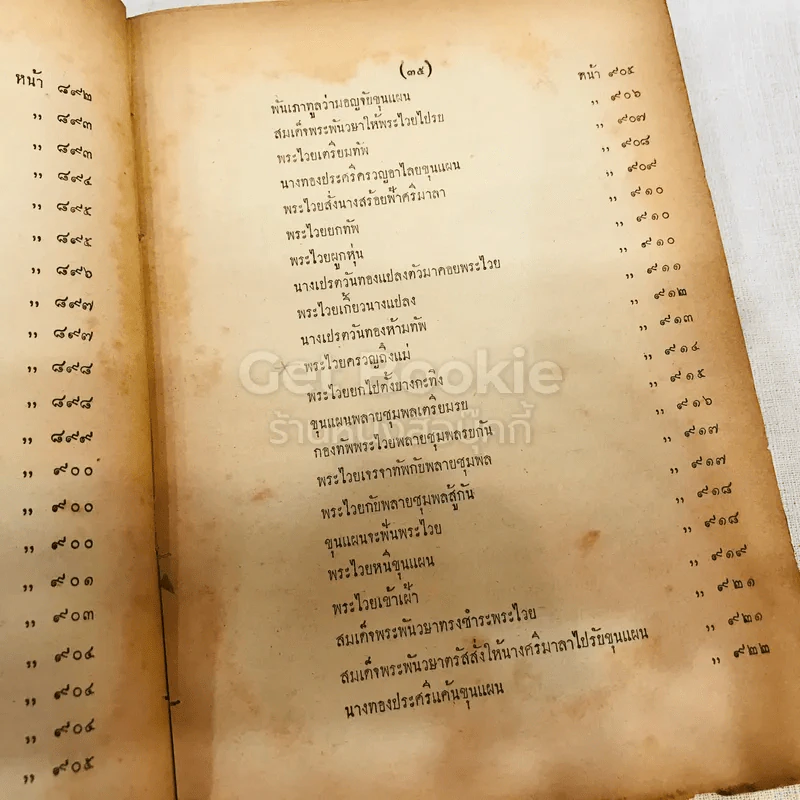 หน้า ๘๙๒
" ๘๙๓
" ๘๙๓
" ๘๙๔
" ๘๙๕
" ๘๙๕
" ๘๙๖
" ๘๙๗
" ๘๙๗
" ๘๙๘
" ๘๙๘
" ๘๙๙
" ๙๐๐
" ๙๐๐
" ๙๐๐
" ๙๐๑
" ๙๐๓
" ๙๐๔
" ๙๐๔
" ๙๐๔
" ๙๐๕
(๓๕)
พันเภาทูลว่ามอญจับขุนแผน หน้า ๙๐๕
สมเด็จพระพันวษาให้พระไวยไปรบ " ๙๐๖
พระไวยเตรียมทัพ " ๙๐๗
นางทองประศรีครวญอาไลยขุนแผน " ๙๐๘
พระไวยสั่งนางสร้อยฟ้าศรีมาลา " ๙๐๙
พระไวยยกทัพ " ๙๑๐
พระไวยผูกหุ่น " ๙๑๐
นางเปรตวันทองแปลงตัวมาคอยพระไวย " ๙๑๐
พระไวยเกี้ยวนางแปลง " ๙๑๑
นางเปรตวันทองห้ามทัพ " ๙๑๒
พระไวยครวญถึงแม่ " ๙๑๓
พระไวยยกไปตั้งบางกะทิง " ๙๑๔
ขุนแผนพลายชุมพลเตรียมรบ " ๙๑๕
กองทัพพระไวยพลายชุมพลรบกัน " ๙๑๖
พระไวยเจรจาทัพกับพลายชุมพล " ๙๑๗
พระไวยกับพลายชุมพลสู้กัน " ๙๑๗
ขุนแผนจะฟันพระไวย " ๙๑๘
พระไวยหนีขุนแผน " ๙๑๘
พระไวยเข้าเฝ้า " ๙๑๙
สมเด็จพระพันวษาทรงชำระพระไวย " ๙๒๑
สมเด็จพระพันวษาตรัสสั่งให้นางศรีมาลาไปรับขุนแผน " ๙๒๑
นางทองประศรีแค้นขุนแผน " ๙๒๒